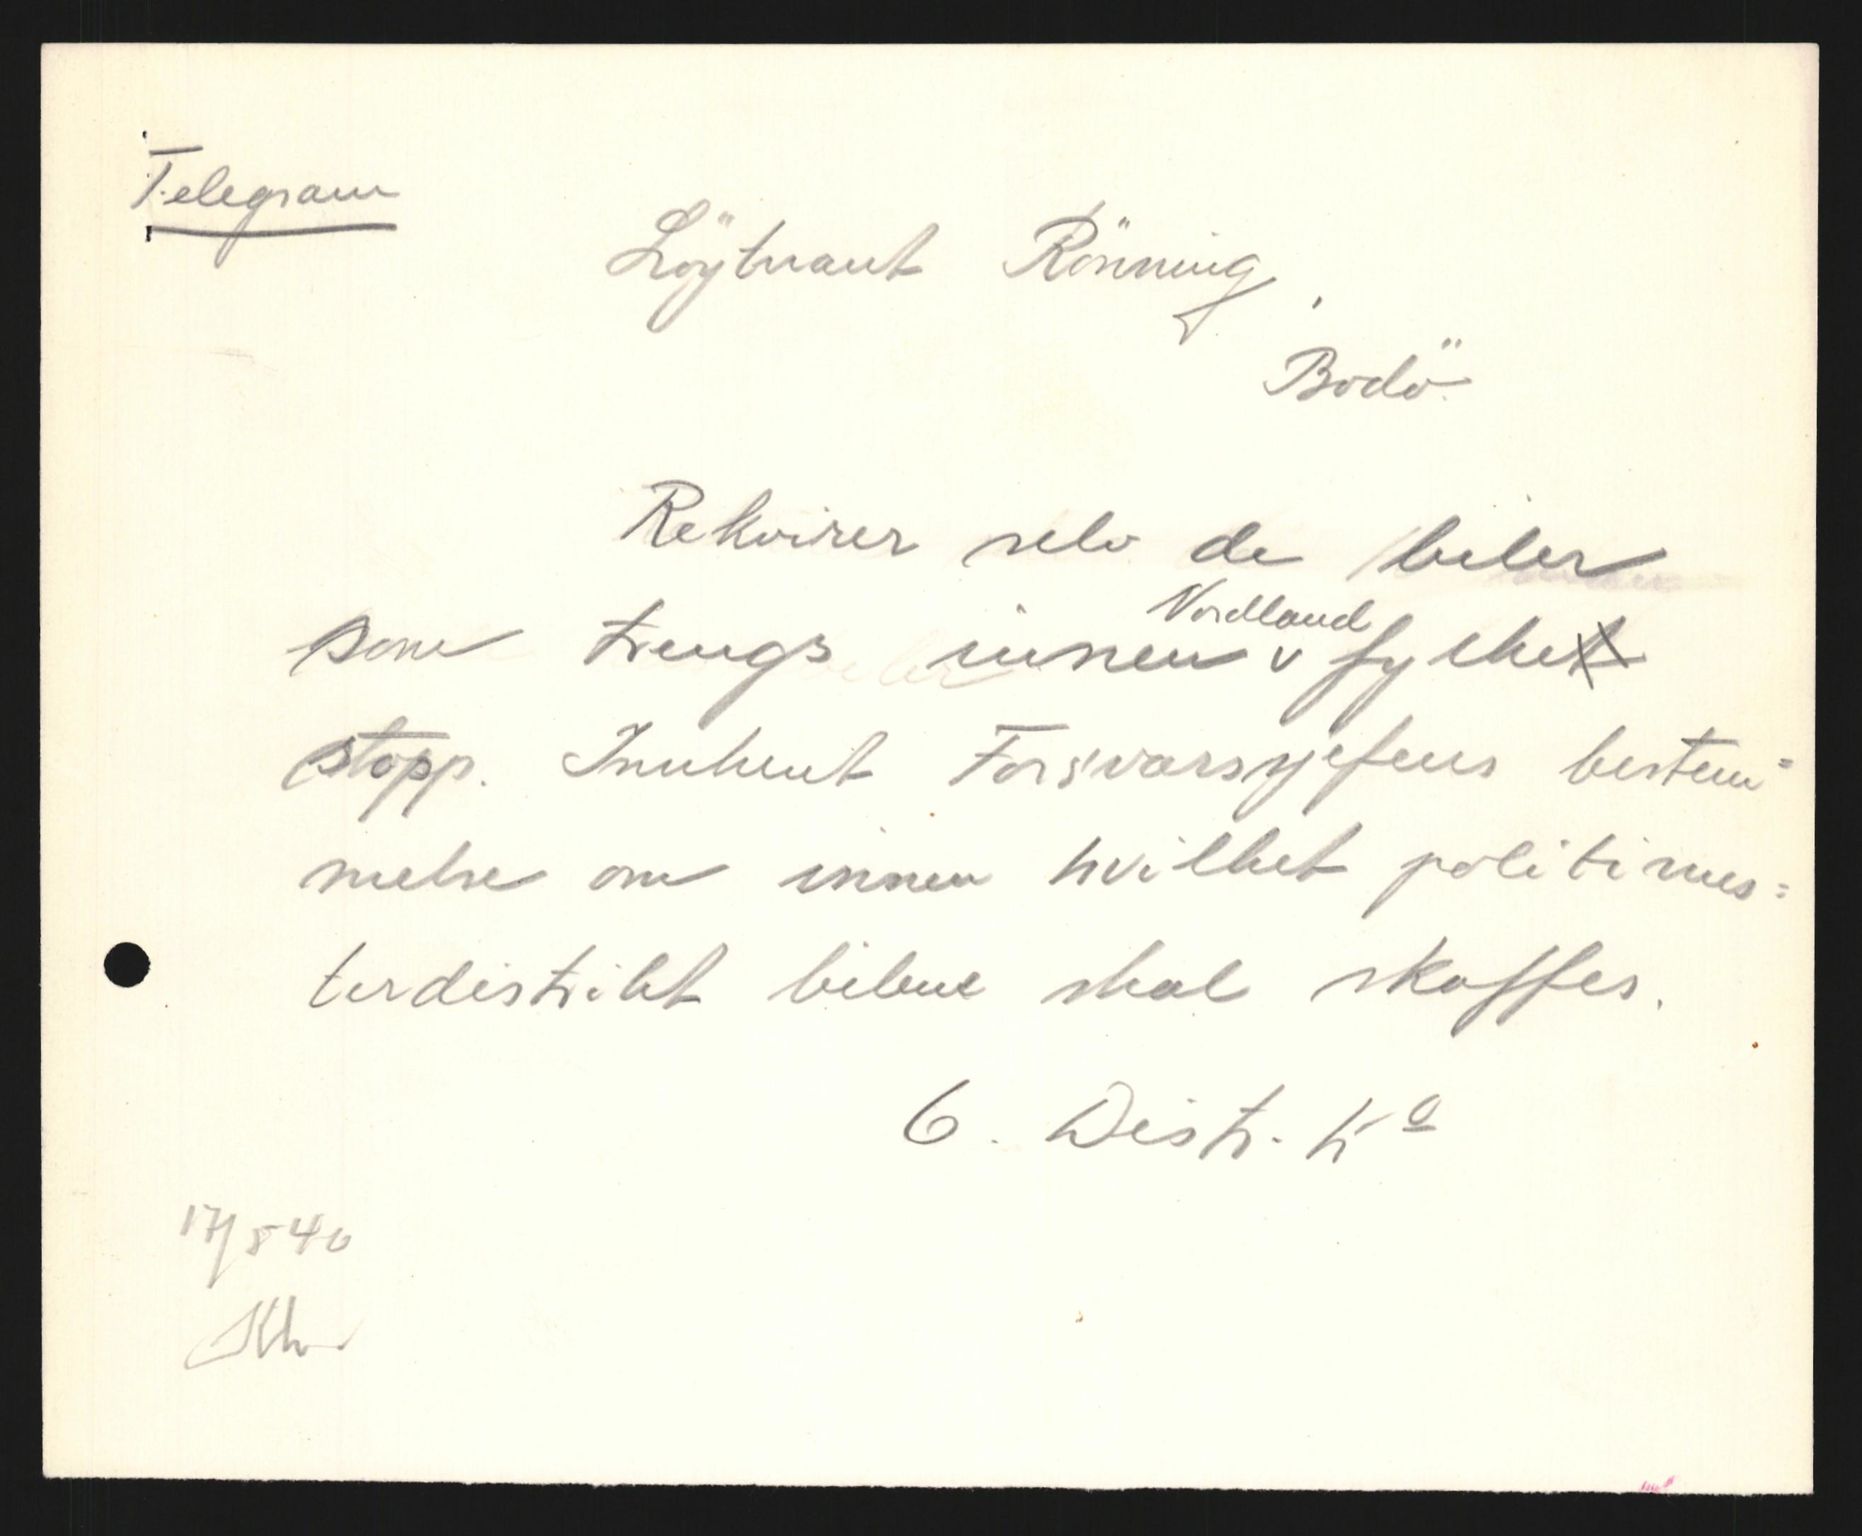 Telegram
Löytnant Rönning,
Bodö.
Rekvirer selv de biler
som trengs innen Nordland fylke
stopp. Innhent Forsvarssjefens bestem=
melse om innen hvilket politimes=
terdistrikt bilene skal skaffes.
6. Distr. k<sup>o</sup>
17/5 40